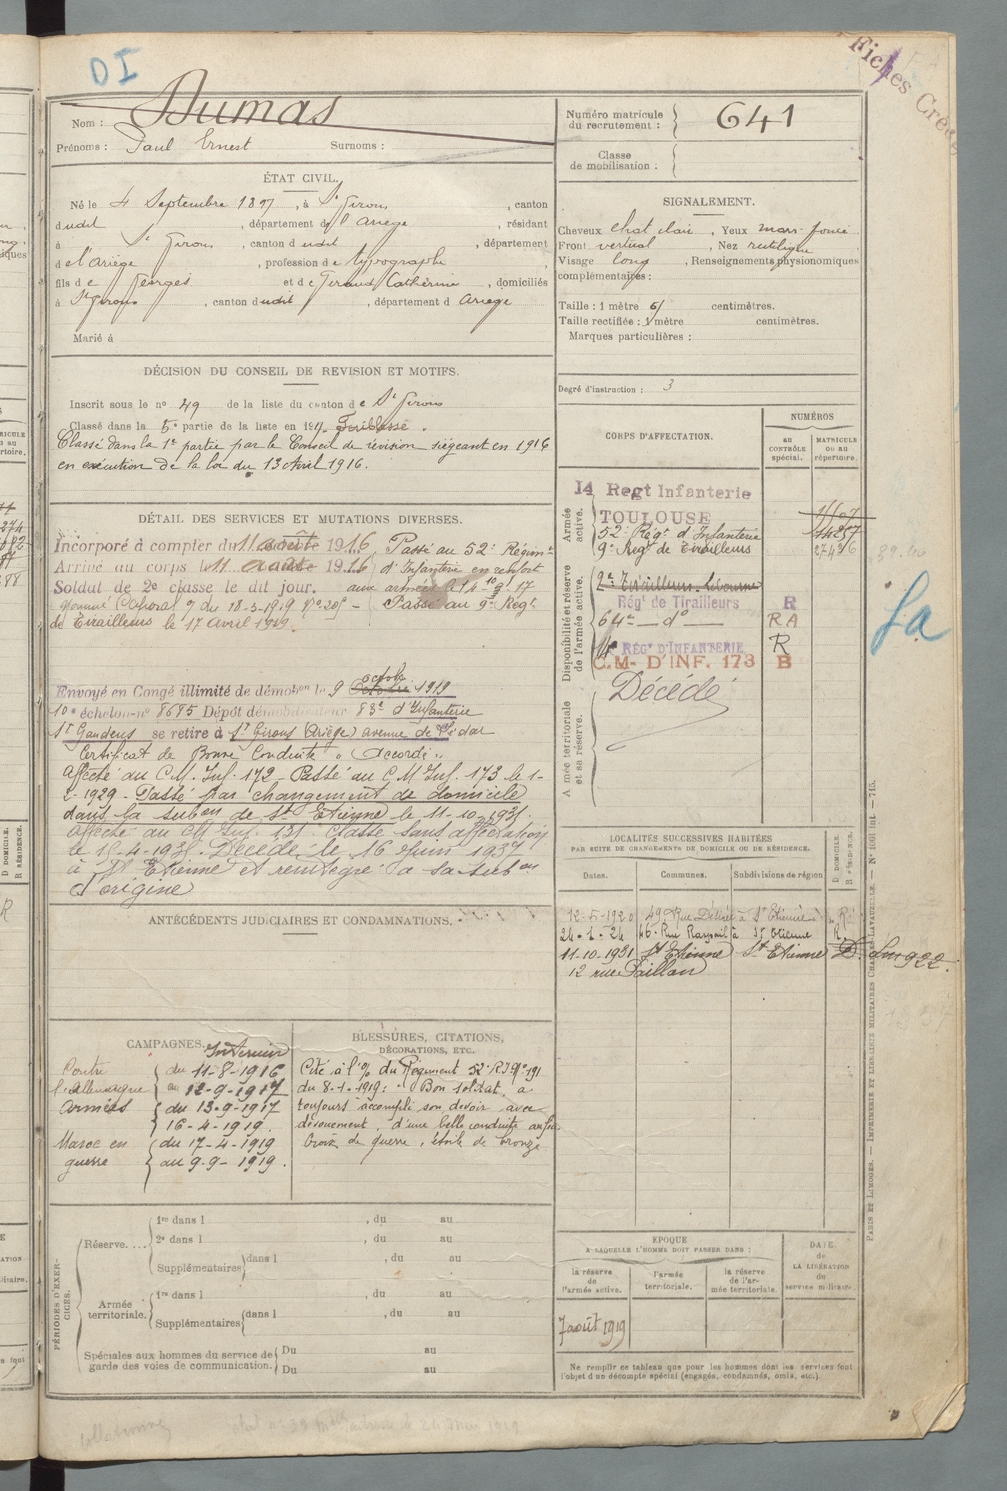 DI
Fiches Créé
Nom : Dumas
Prénoms : Paul Ernest Surnoms :
ÉTAT CIVIL.
Né le 4 Septembre 1897, à St Girons, canton
dudit, département de l'Ariège, résidant
à St Girons, canton dudit, département
de l'Ariège, profession de typographe
fils de Georges et de Catherine, domiciliés
à St Girons, canton dudit, département d Ariège
Marié à
DÉCISION DU CONSEIL DE REVISION ET MOTIFS.
Inscrit sous le no 49 de la liste du canton de St Girons
Classé dans la 5e partie de la liste en 191
Classé dans la 1e partie par le Conseil de révision siégeant en 1916
en exécution de la loi du 13 Avril 1916.
DÉTAIL DES SERVICES ET MUTATIONS DIVERSES.
Incorporé à compter du 11 août 1916
Arrivé au corps le 11 août 1916
Soldat de 2e classe le dit jour.
Passé au 52e Régimt
d'Infanterie en renfort
aux armées le
Passé au 9e Regt
de Tirailleurs le 17 avril 1919.
Envoyé en Congé illimité de démobon le 9 octobre 1919
10e échelon no 8675 Dépôt démobilisateur 83e d'Infanterie
St Gaudens se retire à St Girons (Ariège) avenue de
Certificat de Bonne Conduite "Accordé"
Affecté au C.M. Inf. 172 - Passé au C M Inf. 173 le 1-
2-1929 - Passé par changement de domicile
dans la subon de St Etienne le 11-10-1931.
Affecté au CM Inf. 131. Classé sans affectation
le 15-4-193. Décédé le 16 Juin 1937
à St Etienne et réintégré à sa subon
d'origine
ANTÉCÉDENTS JUDICIAIRES ET CONDAMNATIONS.
CAMPAGNES.
Intérieur
Contre l'Allemagne
du 11-8-1916
au 12-9-1917
Armées
du 13-9-1917
16-4-1919.
Maroc en guerre
du 17-4-1919
au 9-9-1919.
BLESSURES, CITATIONS,
DÉCORATIONS, ETC.
Cité à l'o/ du Régiment 52e RI No 191
du 8-1-1919: "Bon soldat, a
toujours accompli son devoir avec
dévouement, d'une belle conduite au feu
Croix de guerre, étoile de bronze
PÉRIODES D'EXERCICES.
Réserve....
1re dans l , du au
2e dans l , du au
Supplémentaires dans l , du au
Armée territoriale.
1re dans l , du au
Supplémentaires dans l , du au
Spéciales aux hommes du service de garde des voies de communication.
Du au
Du au
Numéro matricule
du recrutement : 641
Classe
de mobilisation :
SIGNALEMENT.
Cheveux chat clair, Yeux marr. foncé
Front vertical, Nez rectiligne
Visage long, Renseignements physionomiques
complémentaires :
Taille : 1 mètre 61 centimètres.
Taille rectifiée : 1 mètre centimètres.
Marques particulières :
Degré d'instruction : 3
CORPS D'AFFECTATION.
NUMÉROS
au
CONTRÔLE
spécial.
MATRICULE
ou au
répertoire.
Armée
active.
14 Regt Infanterie
TOULOUSE
52e Régt d'Infanterie 14257
9e Regt de Tirailleurs
Disponibilité et réserve
de l'armée active.
Régt de Tirailleurs R
64e — do — RA
RÉGt D'INFANTERIE R
C.M- D'INF. 173 B
Armée territoriale
et sa réserve.
Décédé
fa
LOCALITÉS SUCCESSIVES HABITÉES
PAR SUITE DE CHANGEMENTS DE DOMICILE OU DE RÉSIDENCE.
D DOMICILE.
R RÉSIDENCE.
Dates.
Communes.
Subdivisions de région
12-5-1920 49 Rue Désirée à St Etienne R
24-1-24 46 Rue Raspail à St Etienne R
11-10-1931 St Etienne St Etienne D.
12 rue Paillon
EPOQUE
A LAQUELLE L'HOMME DOIT PASSER DANS :
DATE
de
LA LIBÉRATION
du
service militaire
la réserve
de
l'armée active.
l'armée
territoriale.
la réserve
de l'ar-
mée territoriale.
7 août 1919
Ne remplir ce tableau que pour les hommes dont les services font
l'objet d'un décompte spécial (engagés, condamnés, omis, etc.).
PARIS ET LIMOGES. — IMPRIMERIE ET LIBRAIRIE MILITAIRES CHARLES-LAVAUZELLE.